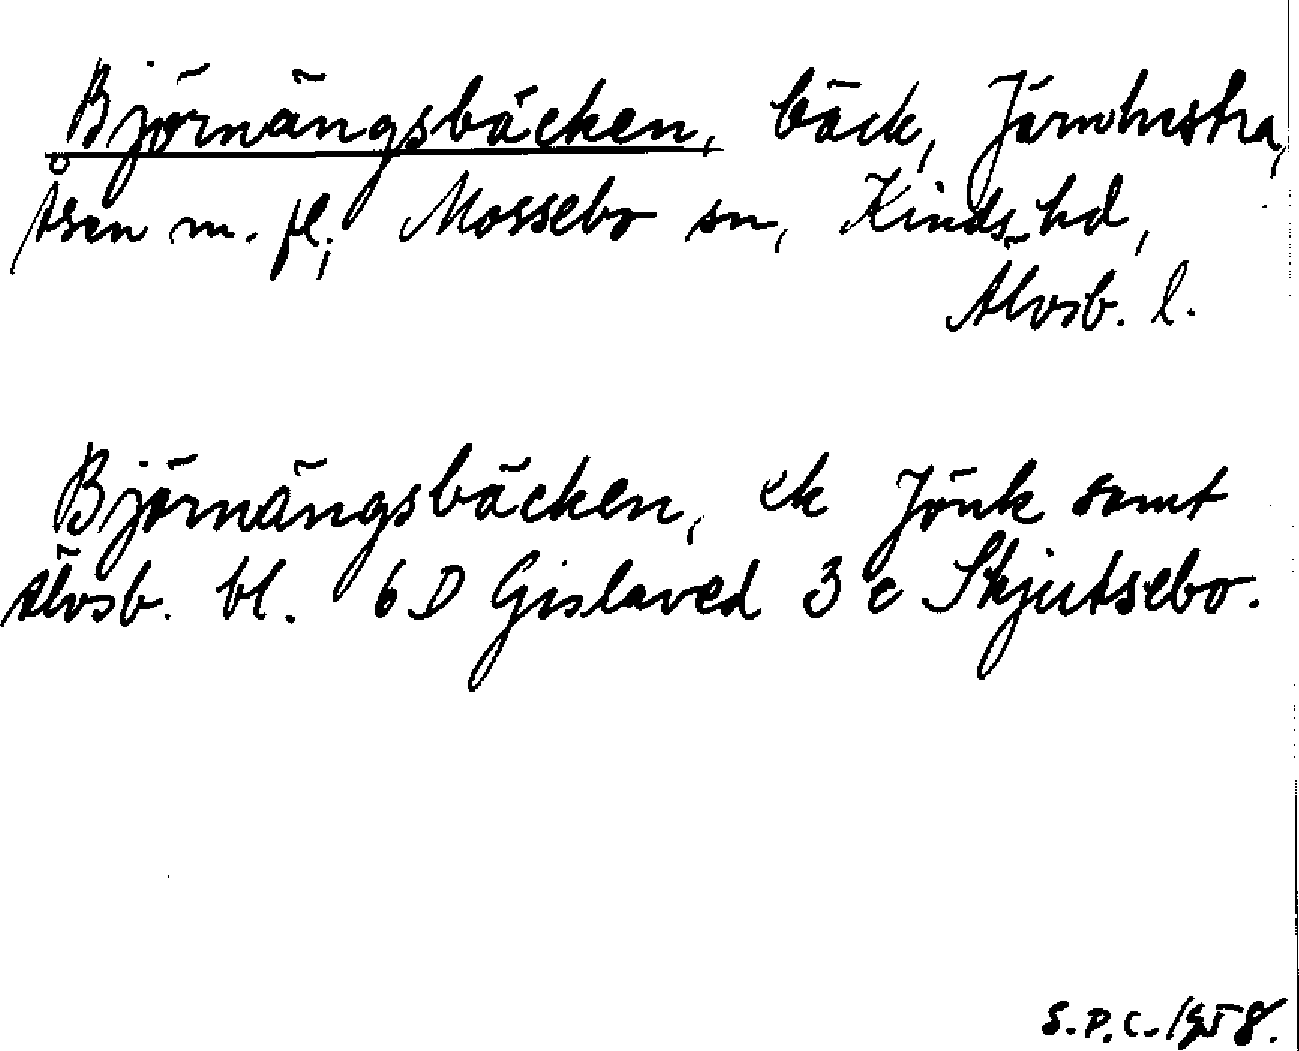 Björnängsbäcken, bäck,
Åsen m. fl., Mossebo sn, Kinds hd,
Älvsb. l.
Björnängsbäcken, ek Jönk samt
Älvsb. bl. 6 D Gislaved 3 c Skjutsebo.
S.P.C. 1958.